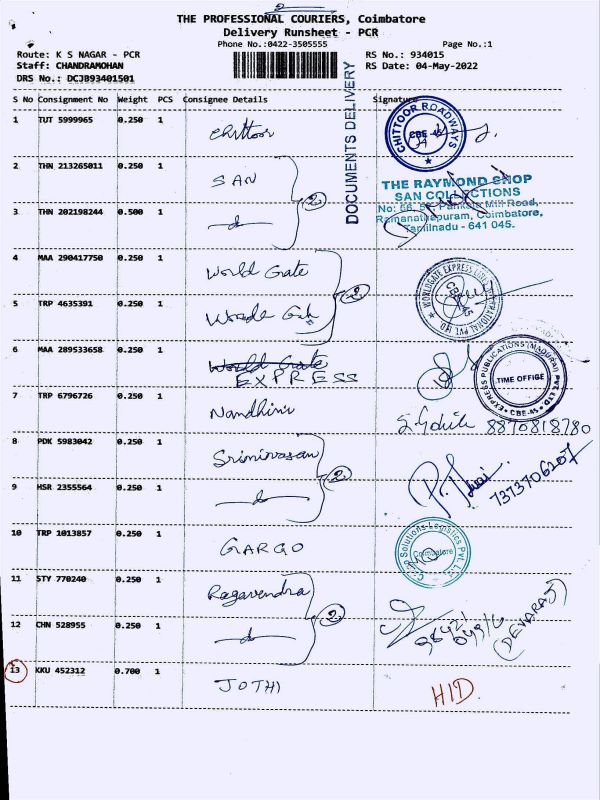 THE PROFESSIONAL COURIERS, Coimbatore
Delivery Runsheet - PCR
Phone No.:0422-3505555
Page No.:1
Route: K S NAGAR - PCR
RS No.: 934015
Staff: CHANDRAMOHAN
RS Date: 04-May-2022
DRS No.: DCJB93401501
DOCUMENTS DELIVERY
S No Consignment No Weight PCS Consignee Details Signature
1 TUT 5999965 0.250 1 Chittoor
CHITTOOR ROADWAYS
CBE-45
2 THN 213265011 0.250 1 SAN
THE RAYMOND SHOP
SAN COLLECTIONS
Mill Road,
Ramanathapuram, Coimbatore,
Tamilnadu - 641 045.
3 THN 202198244 0.500 1
2
4 MAA 290417750 0.250 1 World Gate
5 TRP 4635391 0.250 1
2
CBE-45
6 MAA 289533658 0.250 1 World Gate
EXPRESS
EXPRESS PUBLICATIONS (MADURAI) PVT LTD
TIME OFFICE
CBE-45
7 TRP 6796726 0.250 1 Nandhini
8870818780
8 PDK 5983042 0.250 1 Srinivasan
7373706207
9 HSR 2355564 0.250 1
2
10 TRP 1013857 0.250 1 CARGO
Solutions-Logistics Pvt. Ltd
Coimbatore
11 STY 770240 0.250 1 Ragavendra
12 CHN 528955 0.250 1
2
(DEVARAJ)
13 KKU 452312 0.700 1 JOTHI
HID.